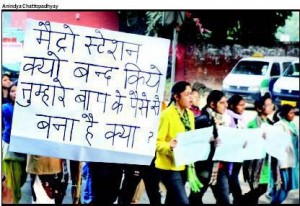 Anindya Chattopadhyay
मैट्रो स्टेशन
क्यों बन्द किये
तुम्हारे बाप के पैसे से
बना है क्या ?